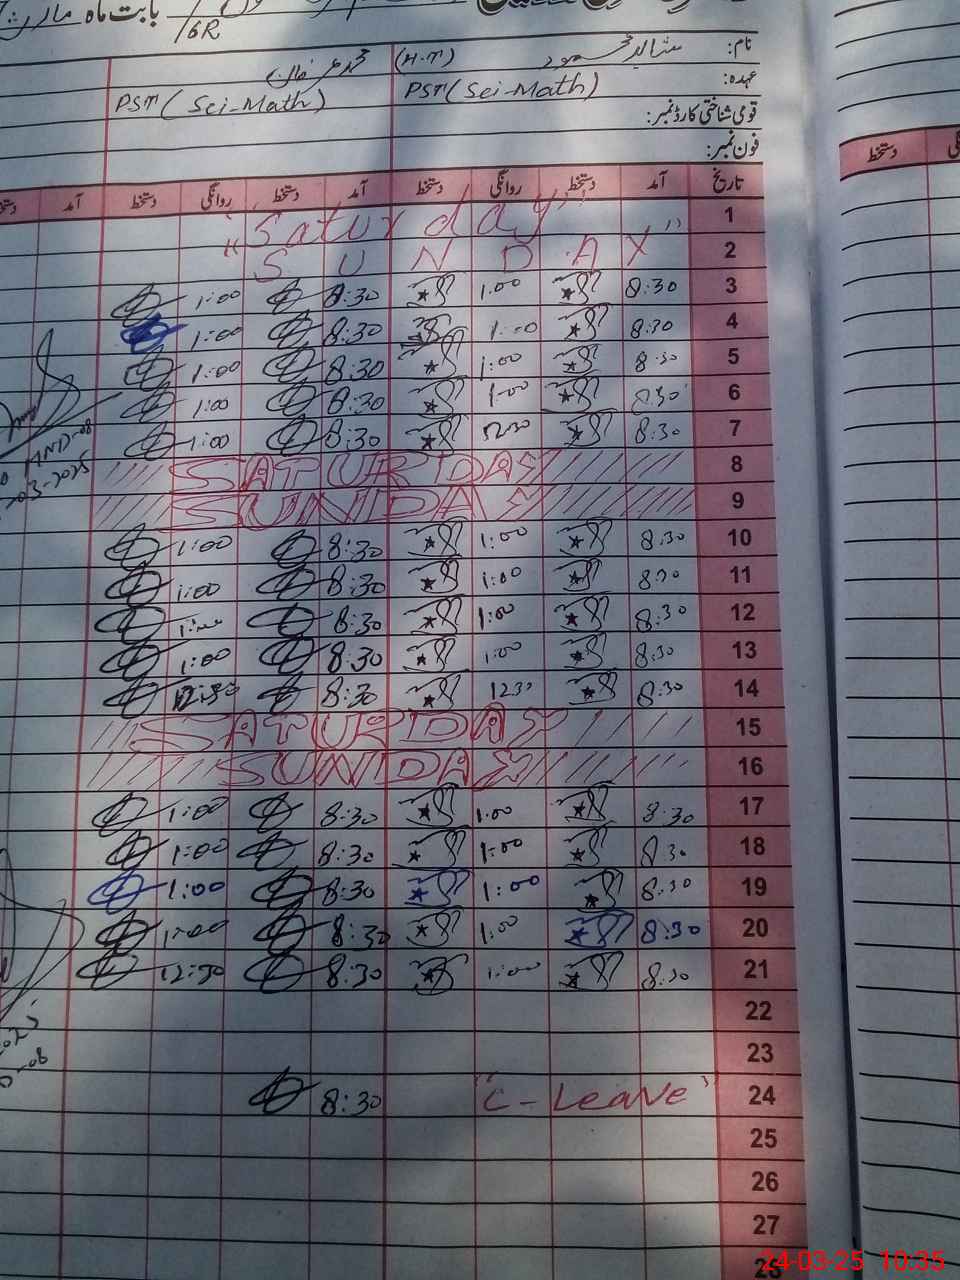 بابت ماہ مارچ
/6R
نام: (H.T)
عہدہ: PST (Sci-Math) PST (Sci-Math)
قومی شناختی کارڈ نمبر:
فون نمبر:
تاریخ آمد دستخط روانگی دستخط آمد دستخط روانگی دستخط آمد
دستخط
1 "Saturday"
2 "SUNDAY"
3 8:30 1:00 8:30 1:00
4 8:30 1:00 8:30 1:00
5 8:30 1:00 8:30 1:00
6 8:30 1:00 8:30 1:00
7 8:30 12:30 8:30 1:00
8 SATURDAY
9 SUNDAY
10 8:30 1:00 8:30 1:00
11 8:30 1:00 8:30 1:00
12 8:30 1:00 8:30 1:00
13 8:30 1:00 8:30 1:00
14 8:30 1230 8:30 12:30
15 SATURDAY
16 SUNDAY
17 8:30 1:00 8:30 1:00
18 8:30 1:00 8:30 1:00
19 8:30 1:00 8:30 1:00
20 8:30 1:00 8:30 1:00
21 8:30 1:00 8:30 12:30
22
23
24 "C-Leave" 8:30
25
26
27
28
24-03-25 10:35